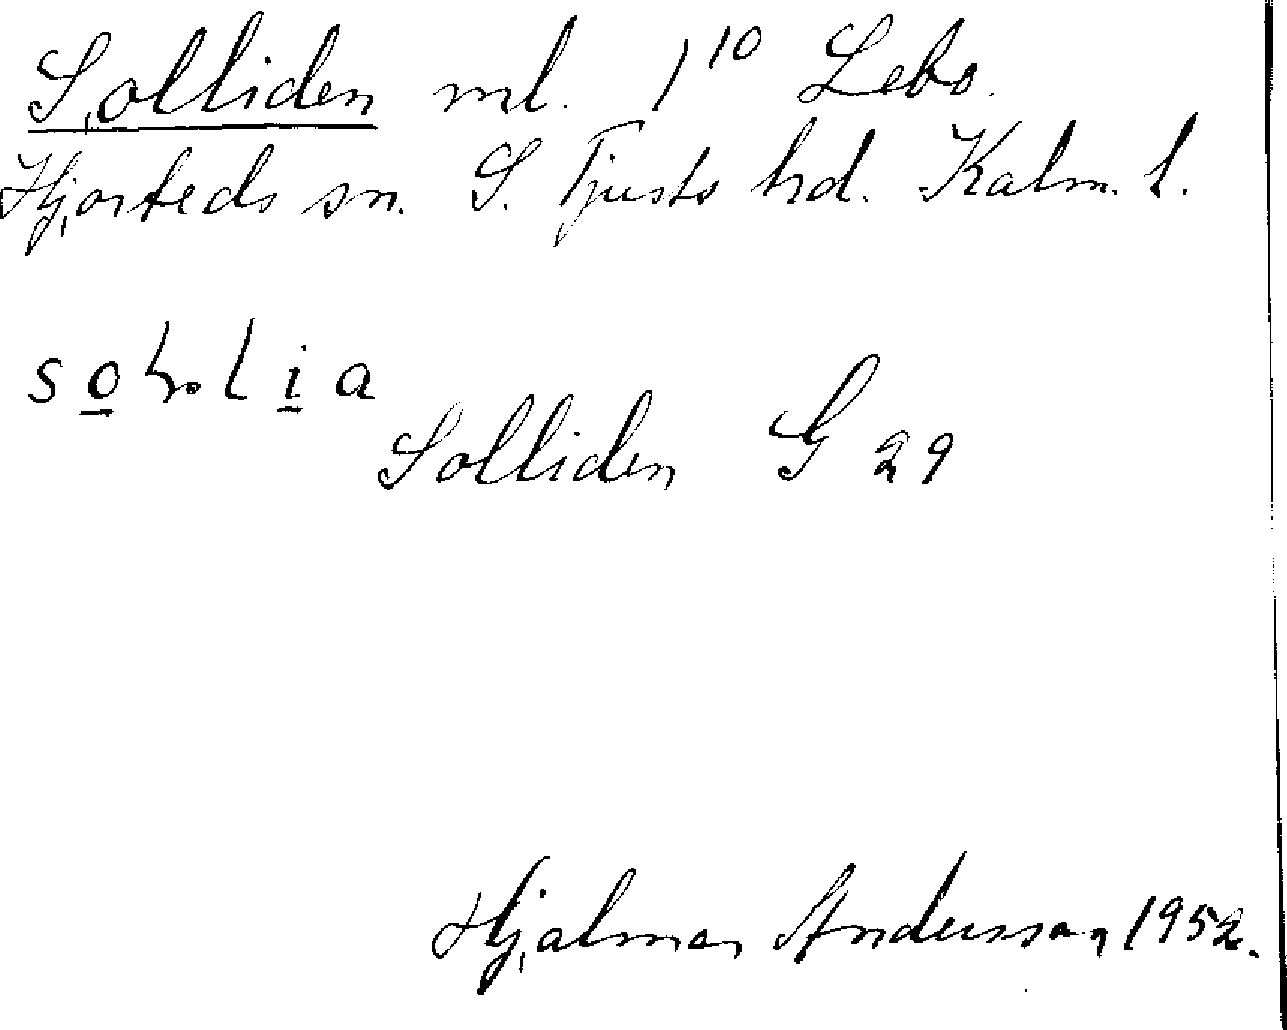 Solliden ml. 1¹⁰ Lebo.
Hjorteds sn. S. Tjusts hd. Kalm. l.
Solliden G 29
Hjalmar Andersson 1952.